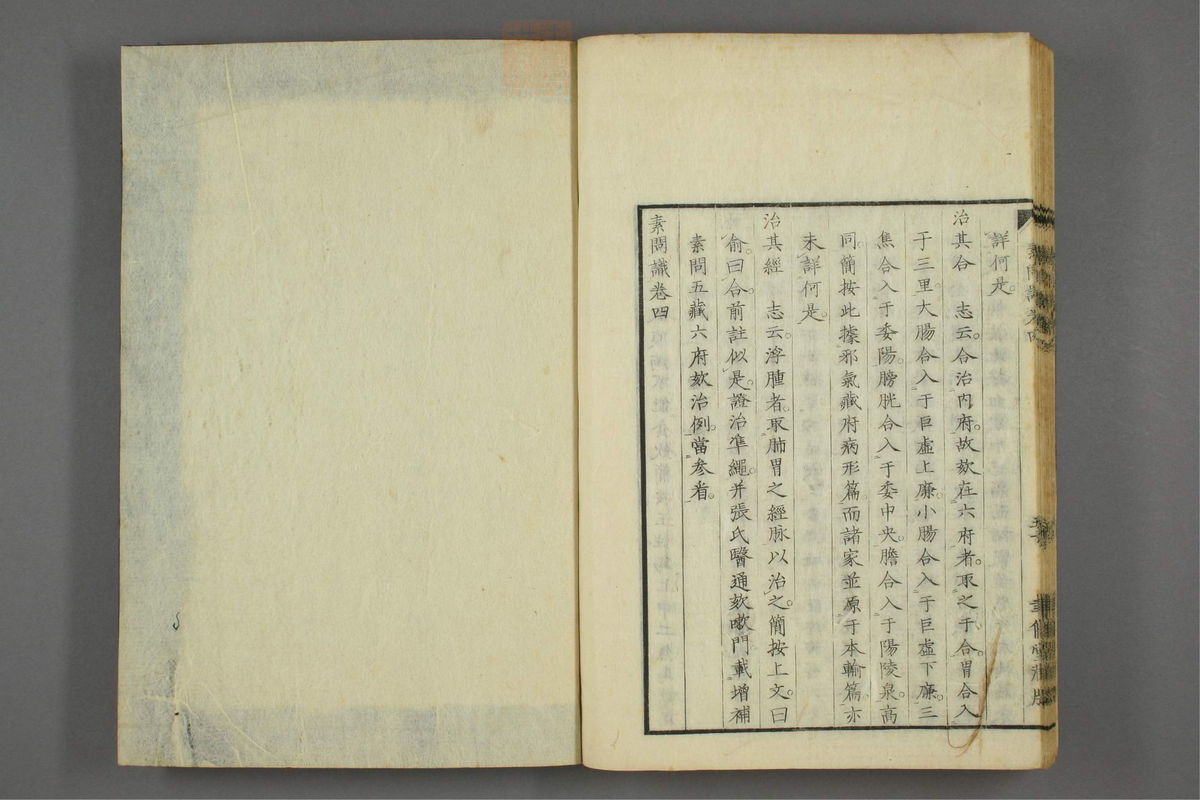 詳何是。
治其合　志云。合治内府。故欬在六府者。取之于合。胃合入
于三里。大腸合入于巨虚上廉。小腸合入于巨虚下廉。三
焦合入于委陽。膀胱合入于委中央。膽合入于陽陵泉。高
同。簡按此據邪氣藏府病形篇。而諸家並原于本輸篇。亦
未詳何是。
治其經　志云。浮腫者。取肺胃之經脉以治之。簡按上文。曰
俞。曰合。前註似是。證治準繩。并張氏醫通欬嗽門。載增補
素問五藏六府欬治例。當參看。
素問識卷四